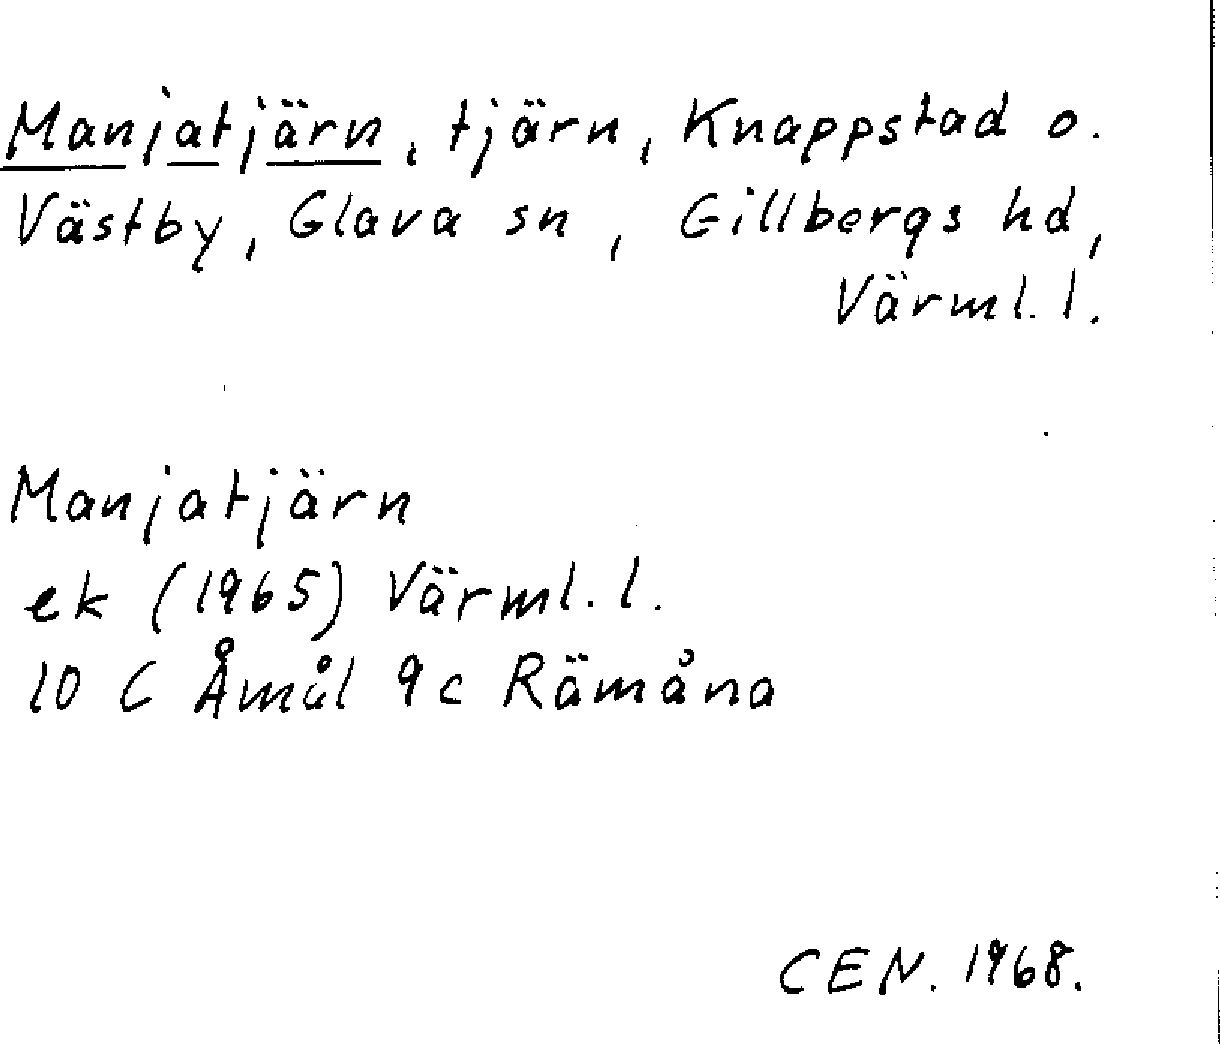 Manjatjärn, tjärn, Knappstad o.
Västby, Glava sn, Gillbergs hd,
Värml. l.
Manjatjärn
ek (1965) Värml. l.
10 C Åmål 9c Rämåna
CEN. 1968.